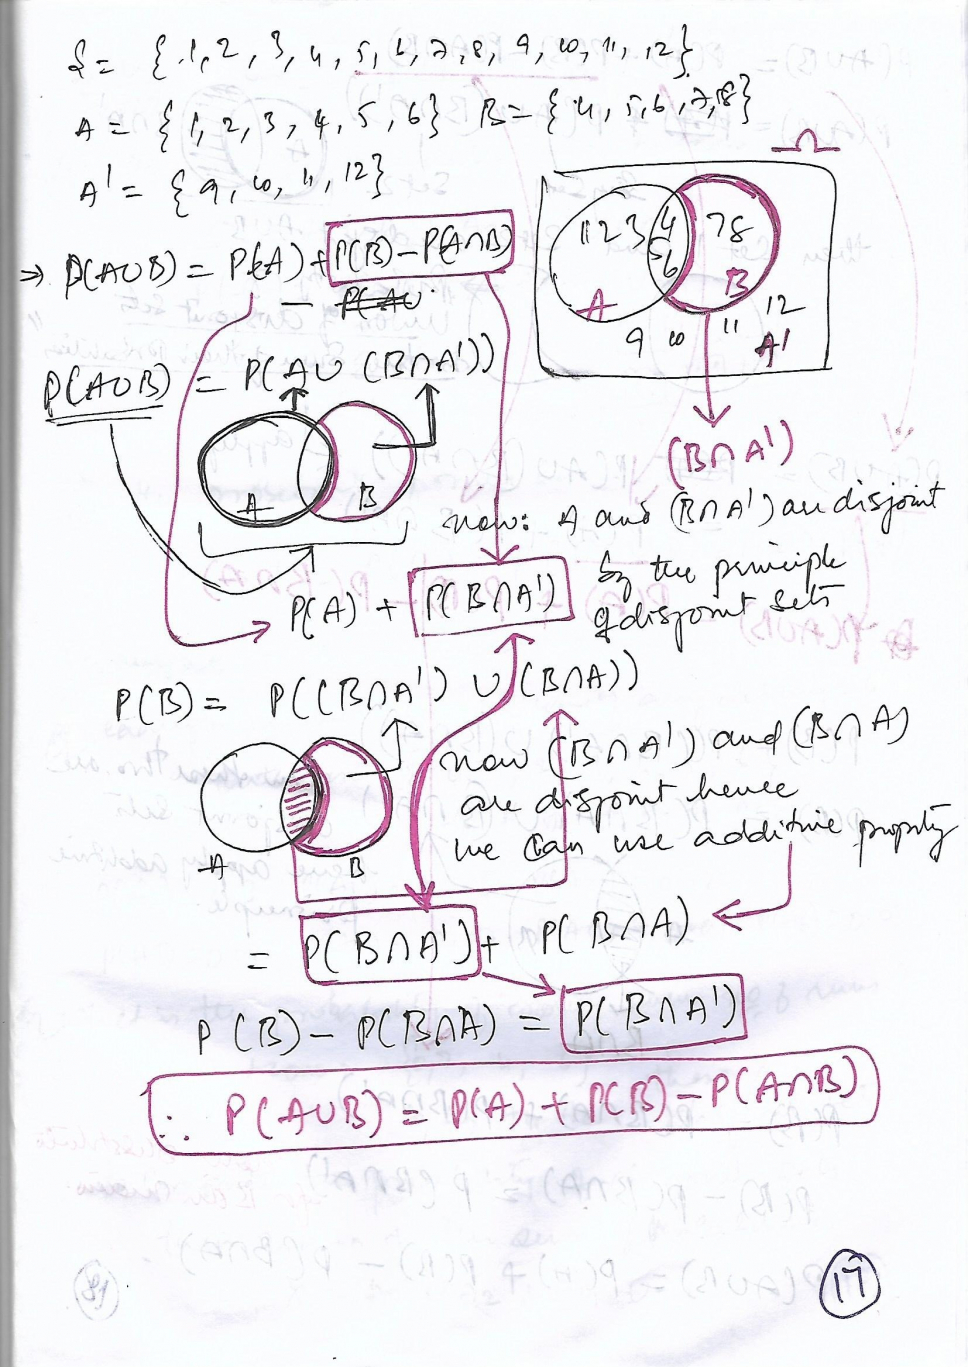 S = {1, 2, 3, 4, 5, 6, 7, 8, 9, 10, 11, 12}
A = {1, 2, 3, 4, 5, 6} B = {4, 5, 6, 7, 8}
A' = {9, 10, 11, 12}
Ω
1 2 3 4 5 6 7 8
A B
9 10 11 12 A'
⇒ P(A∪B) = P(A) + P(B) − P(A∩B)
− P(A∪
P(A∪B) = P(A∪ (B∩A'))
(B∩A')
A B
now: A and (B∩A') are disjoint
by the principle
of disjoint sets
P(A) + P(B∩A')
P(B) = P((B∩A') ∪ (B∩A))
now (B∩A') and (B∩A)
are disjoint hence
we can use additive property
A B
= P(B∩A') + P(B∩A)
P(B) − P(B∩A) = P(B∩A')
∴ P(A∪B) = P(A) + P(B) − P(A∩B)
17